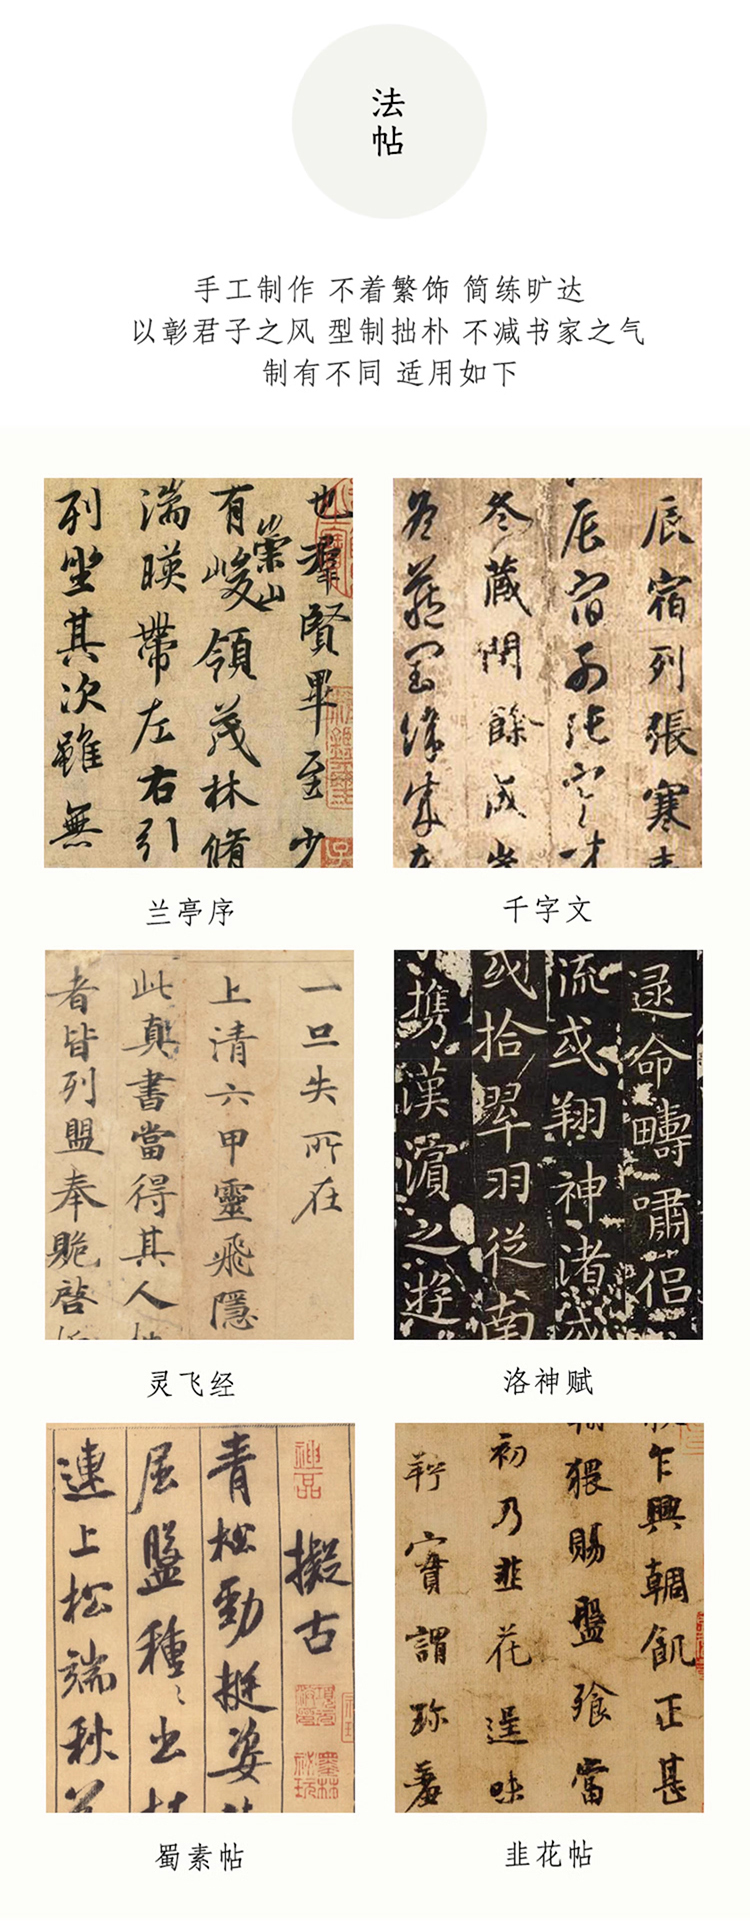 法
帖
手工制作 不着繁饰 简练旷达
以彰君子之风 型制拙朴 不减书家之气
制有不同 适用如下
也羣賢畢至少
有崇山峻領茂林脩
湍暎帶左右引
列坐其次雖無
兰亭序
辰宿列張寒
辰宿列張寒
冬藏閏餘成歲
千字文
一旦失所在
上清六甲靈飛隱
此真書當得其人
者皆列盟奉贶啓
灵飞经
逯命疇嘯侣
流或翔神渚或
或拾翠羽從南
攜漢濵之遊
洛神赋
擬古
青松勁挺姿
屈盤種種出枝
連上松端秋
蜀素帖
乍興輖飢正甚
猥賜盤飡當
初乃韭花逞味
羜實謂珍羞
韭花帖